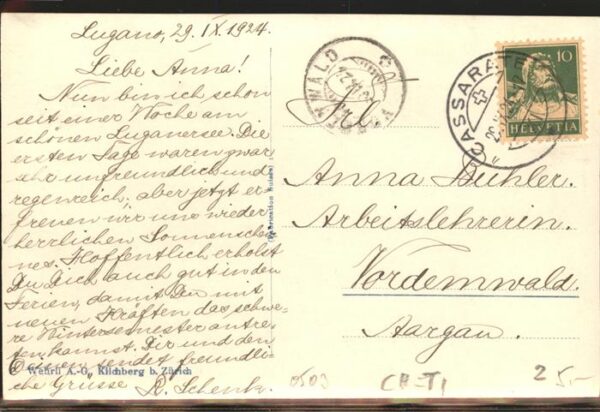 Lugano, 29. IX. 1924.
Liebe Anna!
Nun bin ich schon
seit einer Woche am
schönen Luganersee. Die
ersten Tage waren zwar
sehr unfreundlich und
regenreich, aber jetzt er-
freuen wir uns wieder
herrlichen Sonnenschei-
nes. Hoffentlich erholst
Du Dich auch gut in den
Ferien, damit Du mit
neuen Kräften das schwe-
re Wintersemester antre-
ten kannst. Dir und den
sendet freundli-
che Grüsse R. Schenk.
Wehrli A.-G., Kilchberg b. Zürich
CASSARATE
10
HELVETIA
Frl.
Anna Bühler.
Arbeitslehrerin.
Vordemwald.
Aargau.
CH-TI
25.-